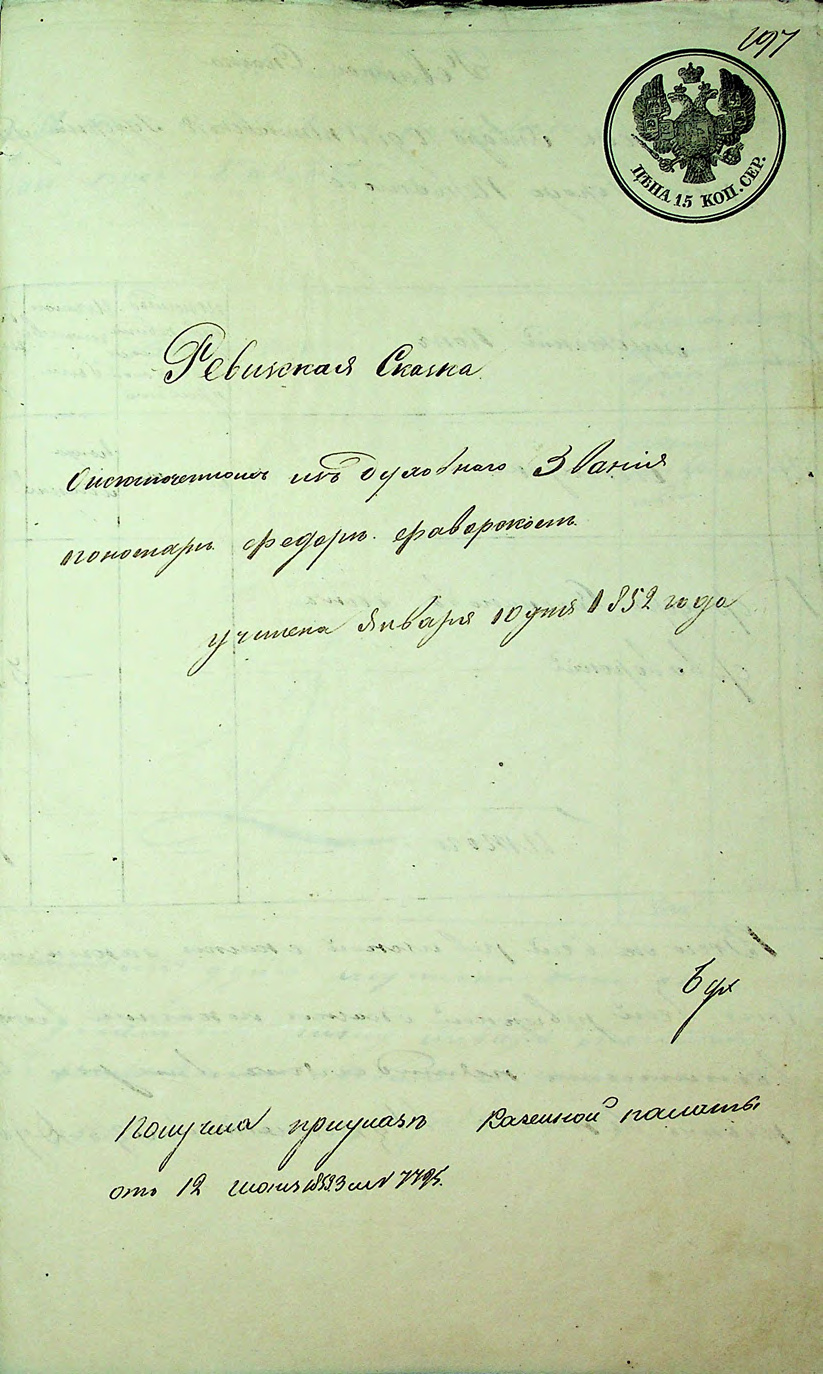 197
ЦѢНА 15 КОП. СЕР.
Ревизская Сказка
О исключенномъ изъ духовнаго Званія
пономарѣ федорѣ фаворскомъ
учинена Января 10 дня 1852 года
Получена приуказѣ Казенной палаты
отъ 12 июня 1853 за №